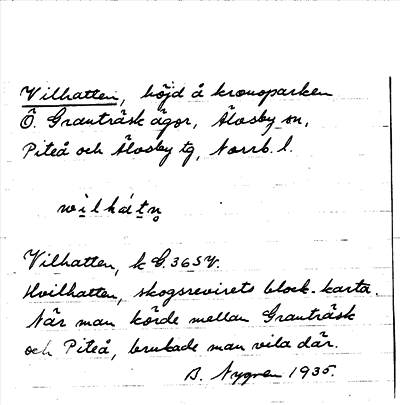 Vilhatten, höjd å kronoparken
Ö. Granträsk ägor, Älvsby sn,
Piteå och Älvsby tg, Norrb. l.
wilhátn̥
Vilhatten, k G.365V.
Hvilhatten, skogsrevirets block-karta.
När man körde mellan Granträsk
och Piteå, brukade man vila där.
B. Nygren 1935.